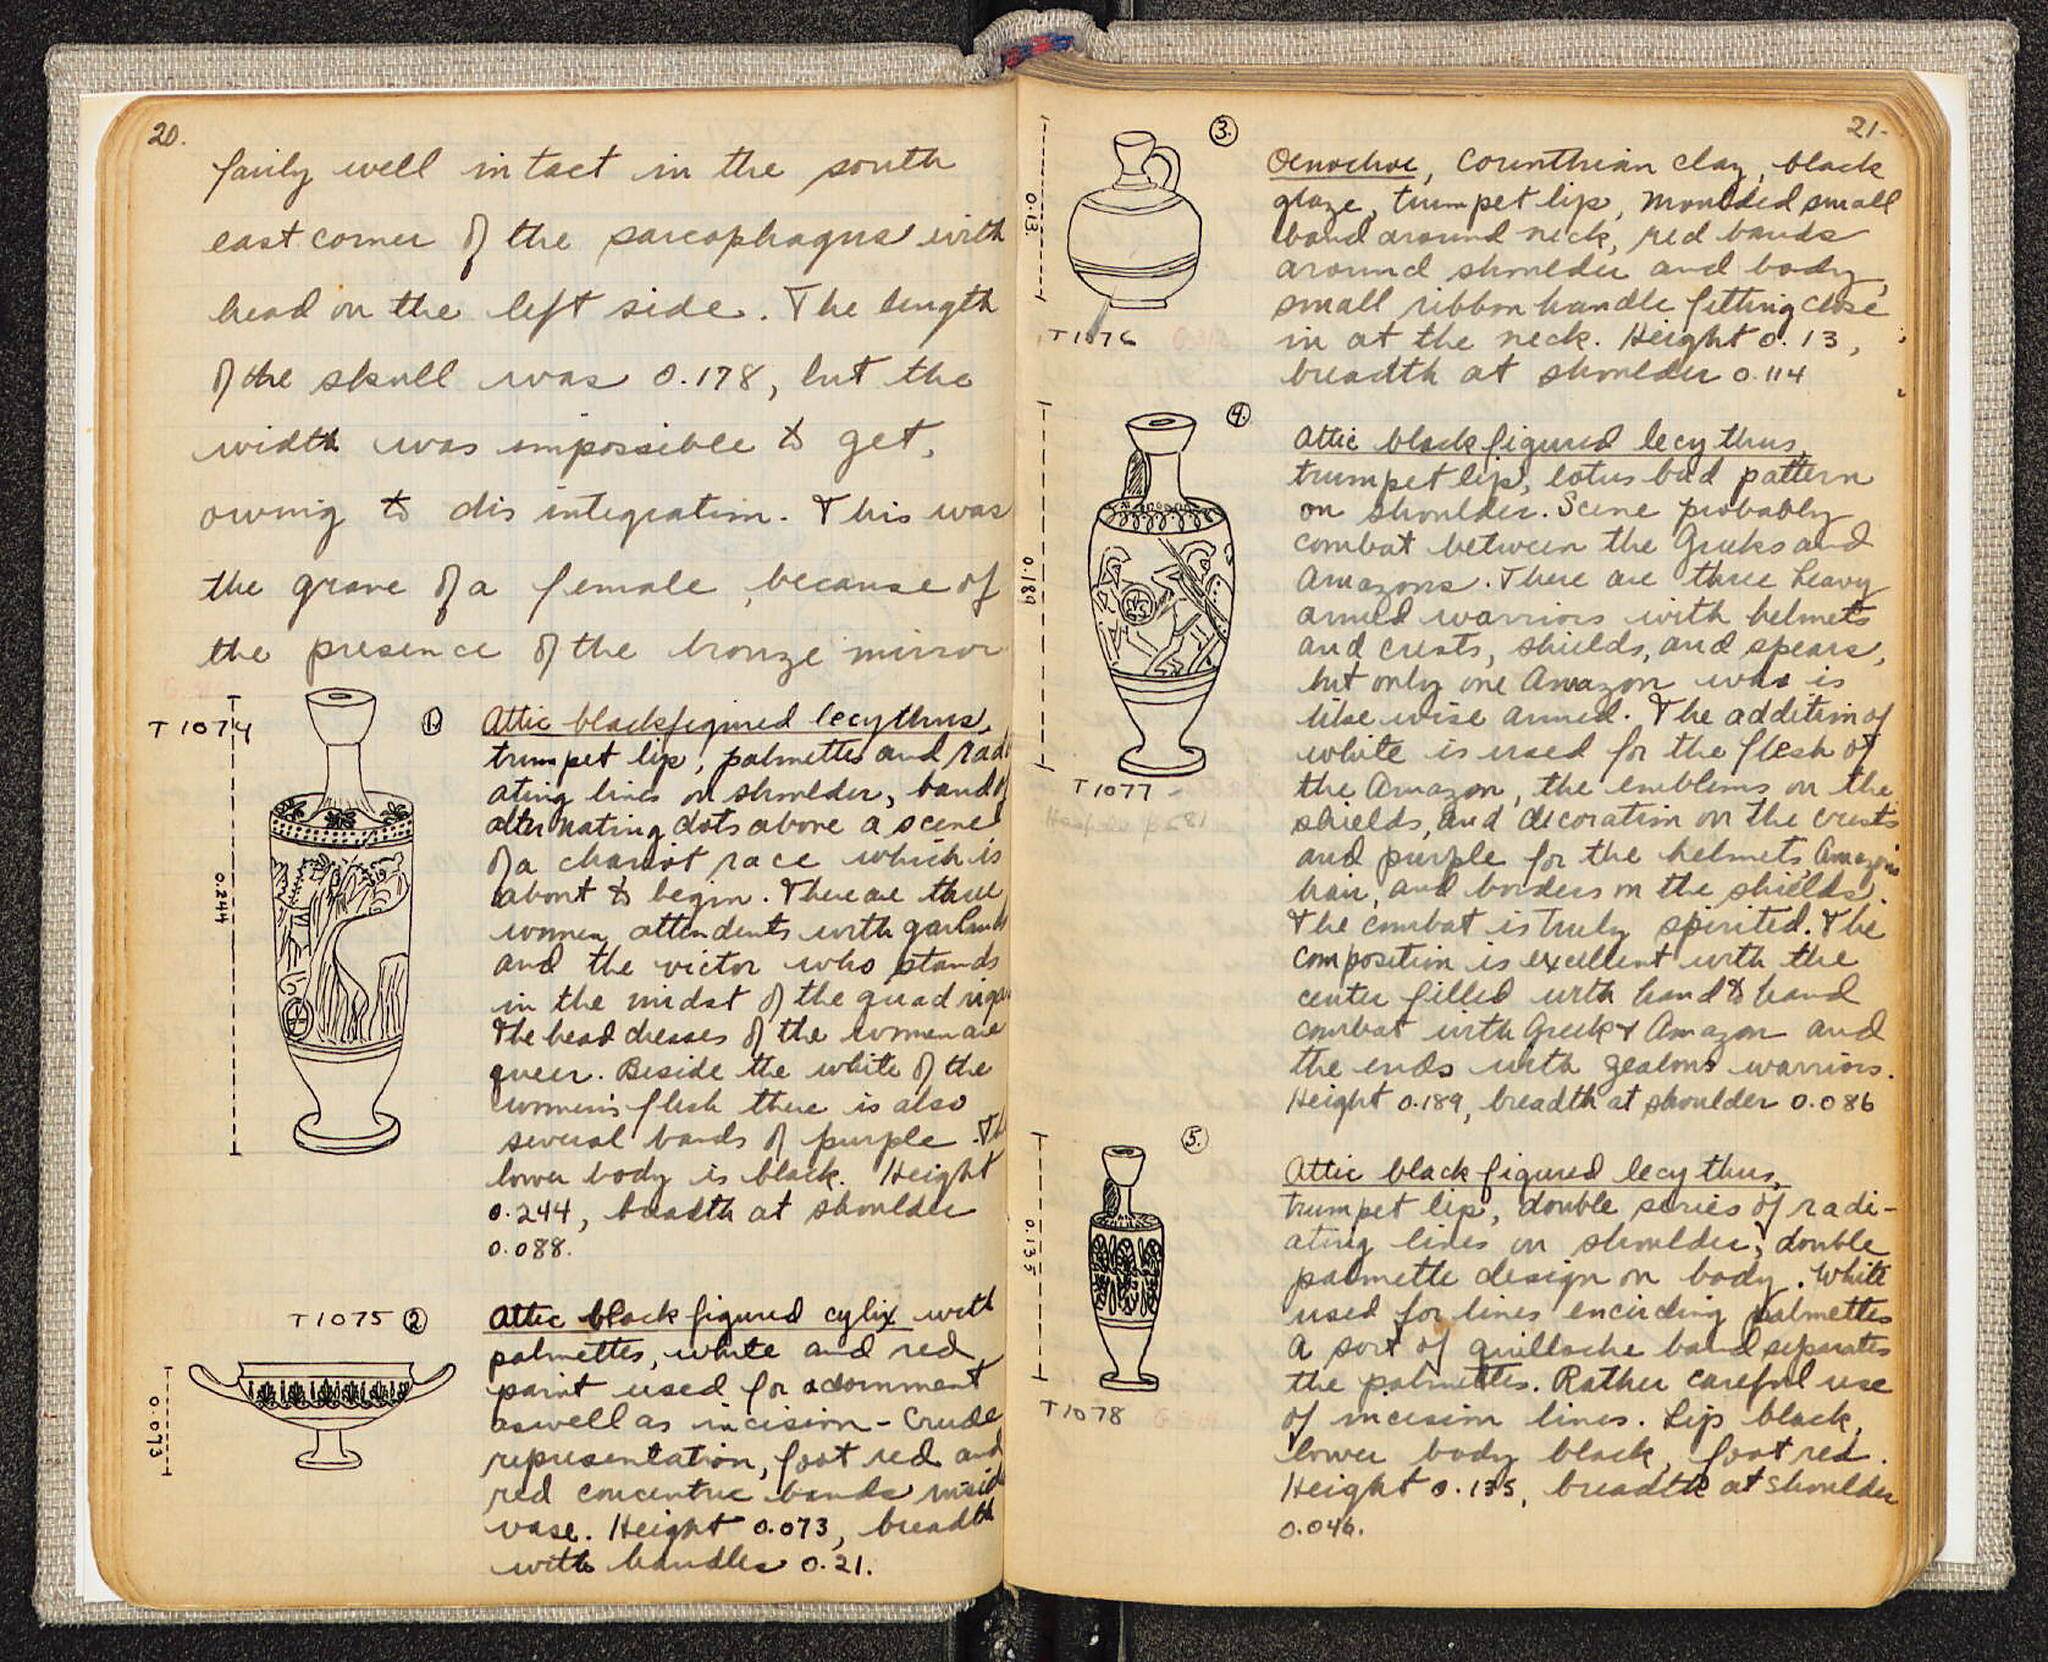 20.
fairly well intact in the south
east corner of the sarcophagus with
head on the left side. The length
of the skull was 0.178, but the
width was impossible to get,
owing to disintegration. This was
the grave of a female, because of
the presence of the bronze mirror
T 1074
0.244
1.
Attic blackfigured lecythus,
trumpet lip, palmettes and radi
ating lines on shoulder, band of
alternating dots above a scene
of a chariot race which is
about to begin. There are three
women attendents with garlands
and the victor who stands
in the midst of the quadriga
The head dresses of the women are
queer. Beside the white of the
women's flesh there is also
several bands of purple. Th
lower body is black. Height
0.244, breadth at shoulder
0.088.
T 1075 2
0.073
Attic black figured cylix with
palmettes, white and red
paint used for adornment
as well as incision - Crude
representation, foot red and
red concentric bands inside
vase. Height 0.073, breadth
with handles 0.21.
21.
3.
0.13.
T 1076
Oenochoe, Corinthian clay, black
glaze, trumpet lip, moulded small
band around neck, red bands
around shoulder and body,
small ribbon handle fitting close
in at the neck. Height 0.13,
breadth at shoulder 0.114
4.
0.189
T 1077
Attic black figured lecythus,
trumpet lip, lotus bud pattern
on shoulder. Scene probably
combat between the Greeks and
Amazons. There are three heavy
armed warriors with helmets
and crests, shields, and spears,
but only one Amazon was is
likewise armed. The addition of
white is used for the flesh of
the Amazon, the emblems on the
shields, and decoration on the crests
and purple for the helmets, Amazon's
hair, and borders on the shields.
The combat is truly spirited. The
composition is excellent with the
center filled with hand to hand
combat with Greek & Amazon and
the ends with zealous warriors.
Height 0.189, breadth at shoulder 0.086
5.
0.135
T 1078
Attic black figured lecythus,
trumpet lip, double series of radi-
ating lines on shoulder, double
palmette design on body. White
used for lines encircling palmettes
A sort of guilloche band separates
the palmettes. Rather careful use
of incision lines. Lip black,
lower body black, foot red.
Height 0.135, breadth at shoulder
0.046.